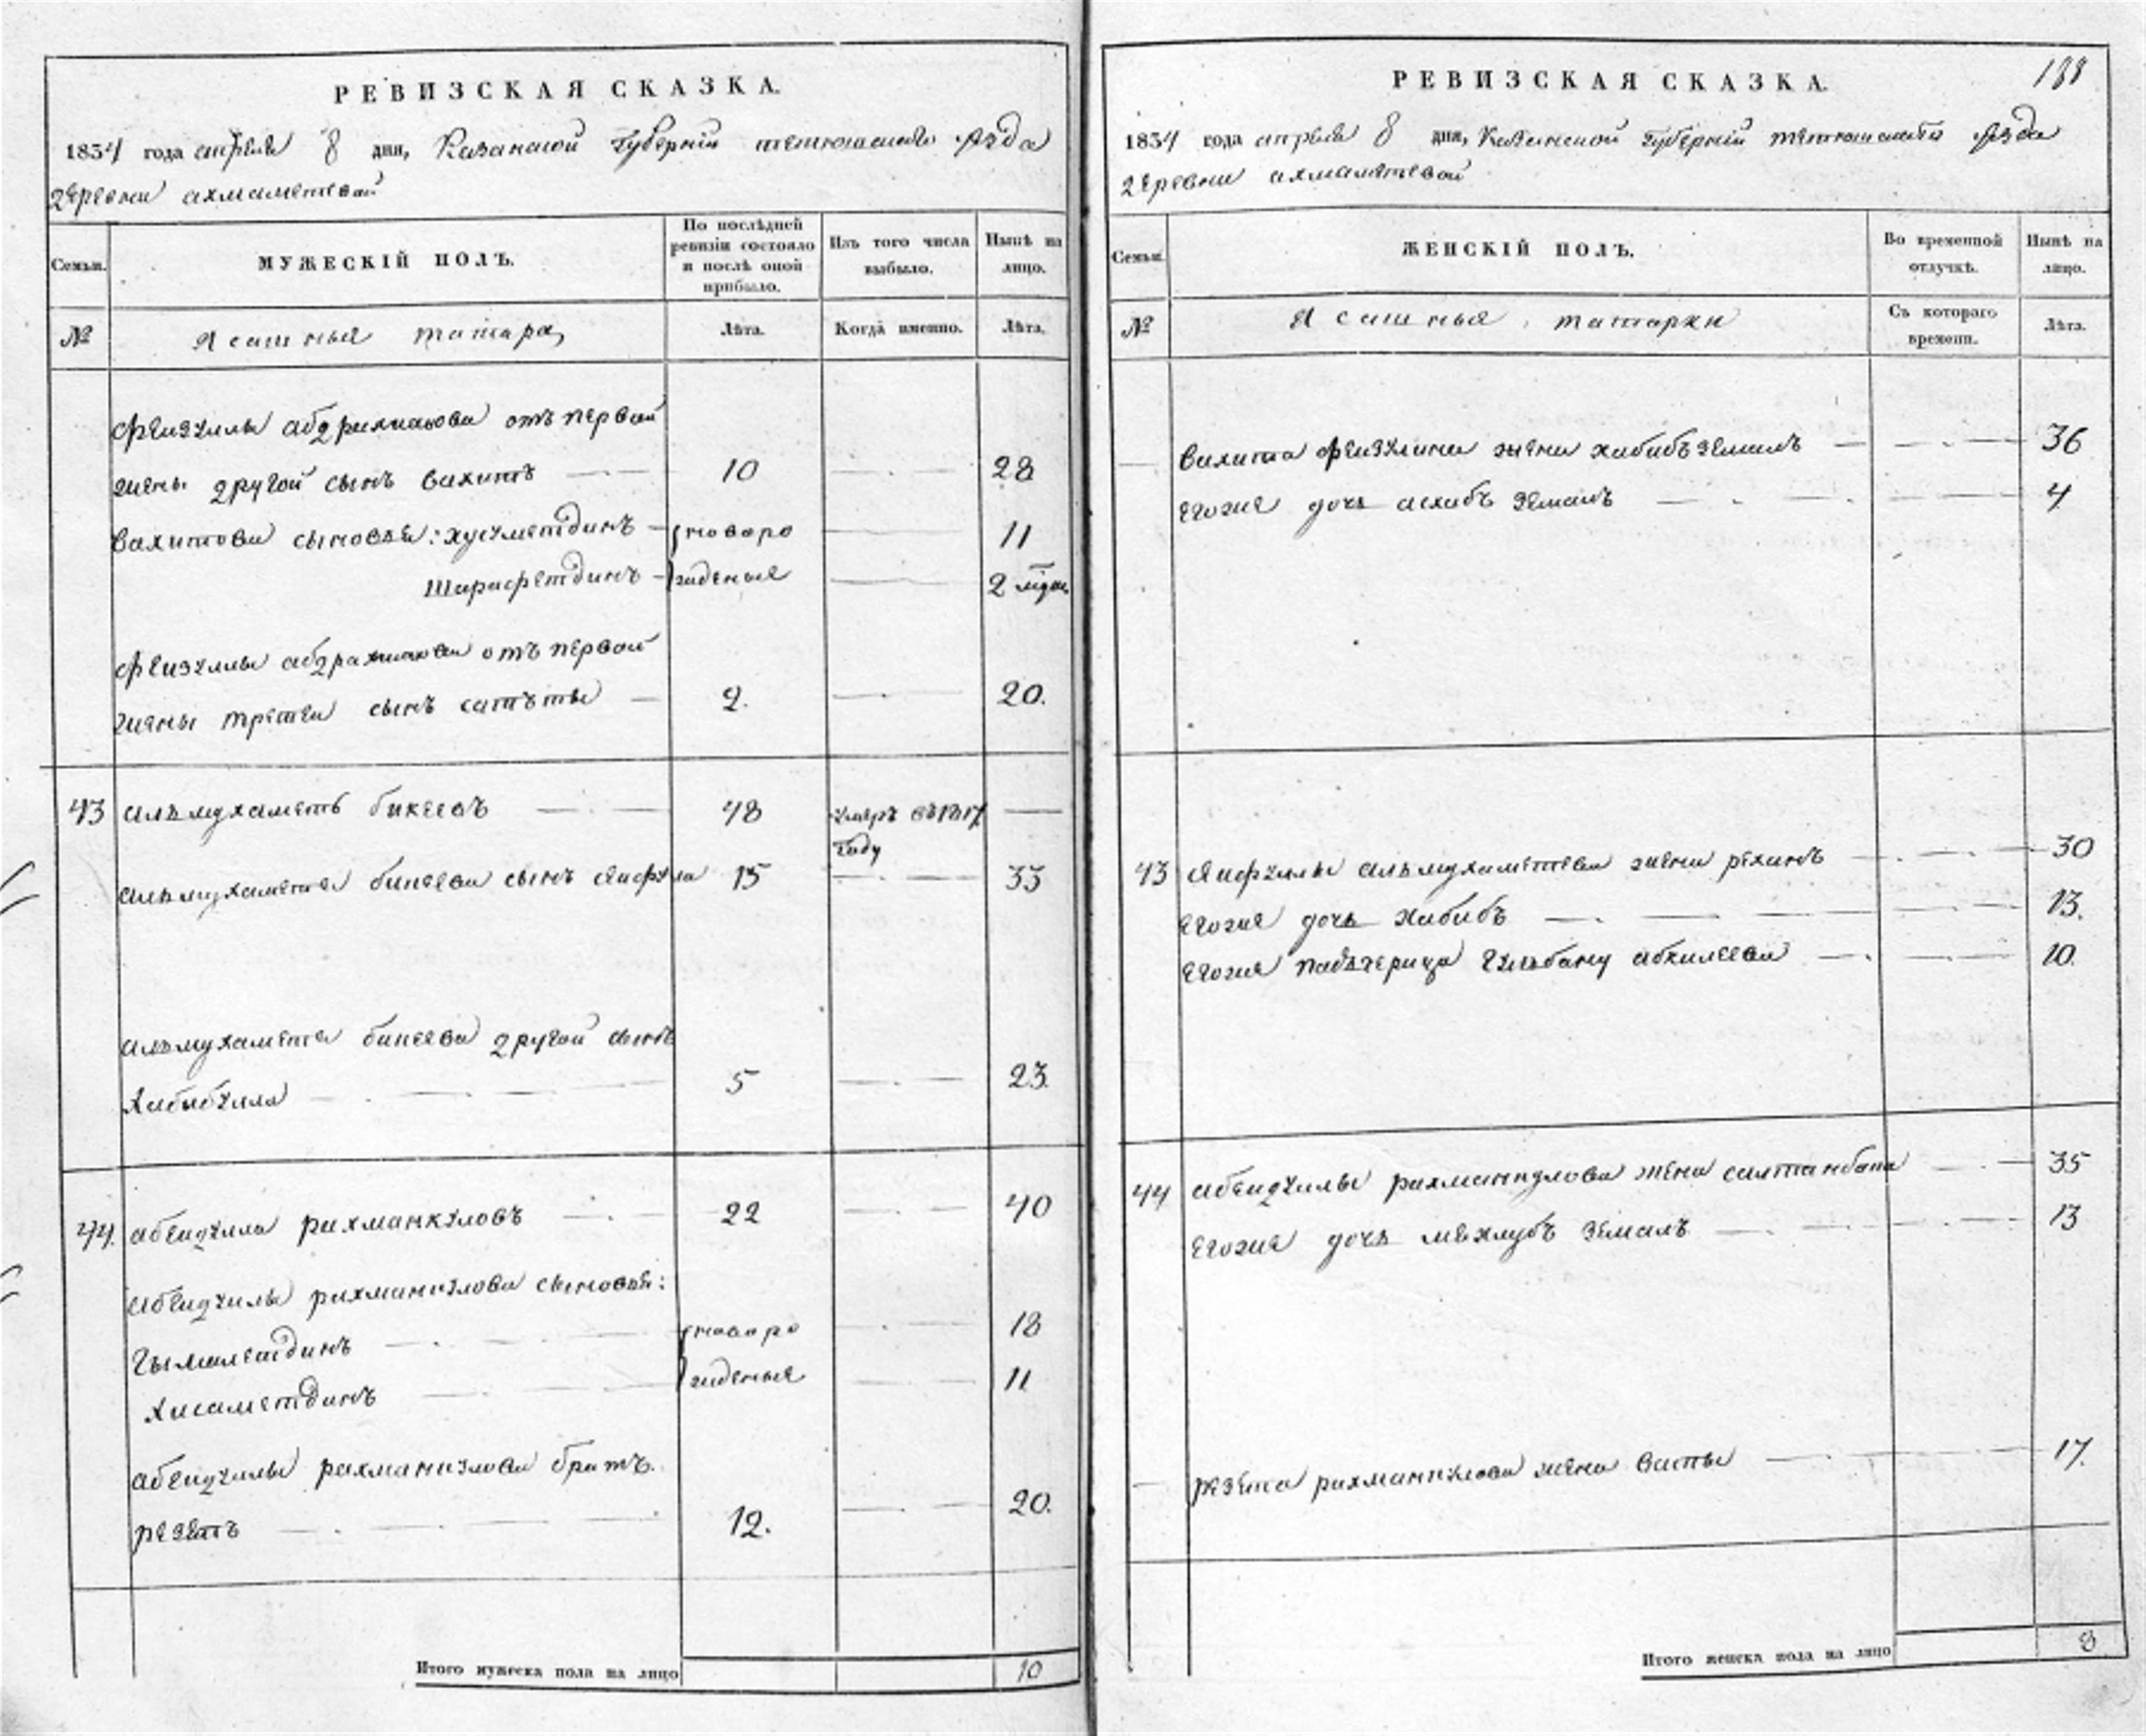 РЕВИЗСКАЯ СКАЗКА.
1834 года апреля 8 дня, Казанской губернiи тетюшскаго уѣзда
деревни ахмаметевой
Семьи.
МУЖЕСКІЙ ПОЛЪ.
По послѣдней
ревизіи состояло
и послѣ оной
прибыло.
Изъ того числа
выбыло.
Нынѣ на
лицо.
№
Ясашныя татара
Лѣта.
Когда именно.
Лѣта.
Феизуллы абдрахманова отъ первой
жены другой сынъ вахитъ 10 28
вахитова сыновья: хусуметдинъ новоро 11
шарафетдинъ жденые 2
Феизуллы абдрахманова отъ первой
жены третей сынъ 2. 20.
43 альмухаметь бикеевъ 48 умеръ въ 1817
году
альмухаметя бикеева сынъ сяифулла 15 33
альмухаметя бикеева другой сынъ
хабибулла 5 23.
44. абеидулла рахманкуловъ 22 40
абеидуллы рахманкулова сыновья:
новоро 18
хисаметдинъ жденые 11
абеидуллы рахманкулова братъ
резепъ 12. 20.
Итого мужеска пола на лицо 10
РЕВИЗСКАЯ СКАЗКА.
188
1834 года апреля 8 дня, Казанской губернiи тетюшскаго уѣзда
деревни ахмаметевой
Семьи.
ЖЕНСКІЙ ПОЛЪ.
Во временной
отлучкѣ.
Нынѣ на
лицо.
№
Ясашныя татарки
Съ котораго
времени.
Лѣта.
вахита феизулина жена хабибъ земалъ 36
егожа дочь асхабъ земалъ 4
43 сяифуллы альмухаметева жена 30
егожа дочь хабибъ 13.
егожа падчерица гульбану абкилеева 10.
44 абеидуллы рахманкулова жена салтанбана 35
егожа дочь махлубъ земалъ 13
резепа рахманкулова жена 17.
Итого женска пола на лицо 8